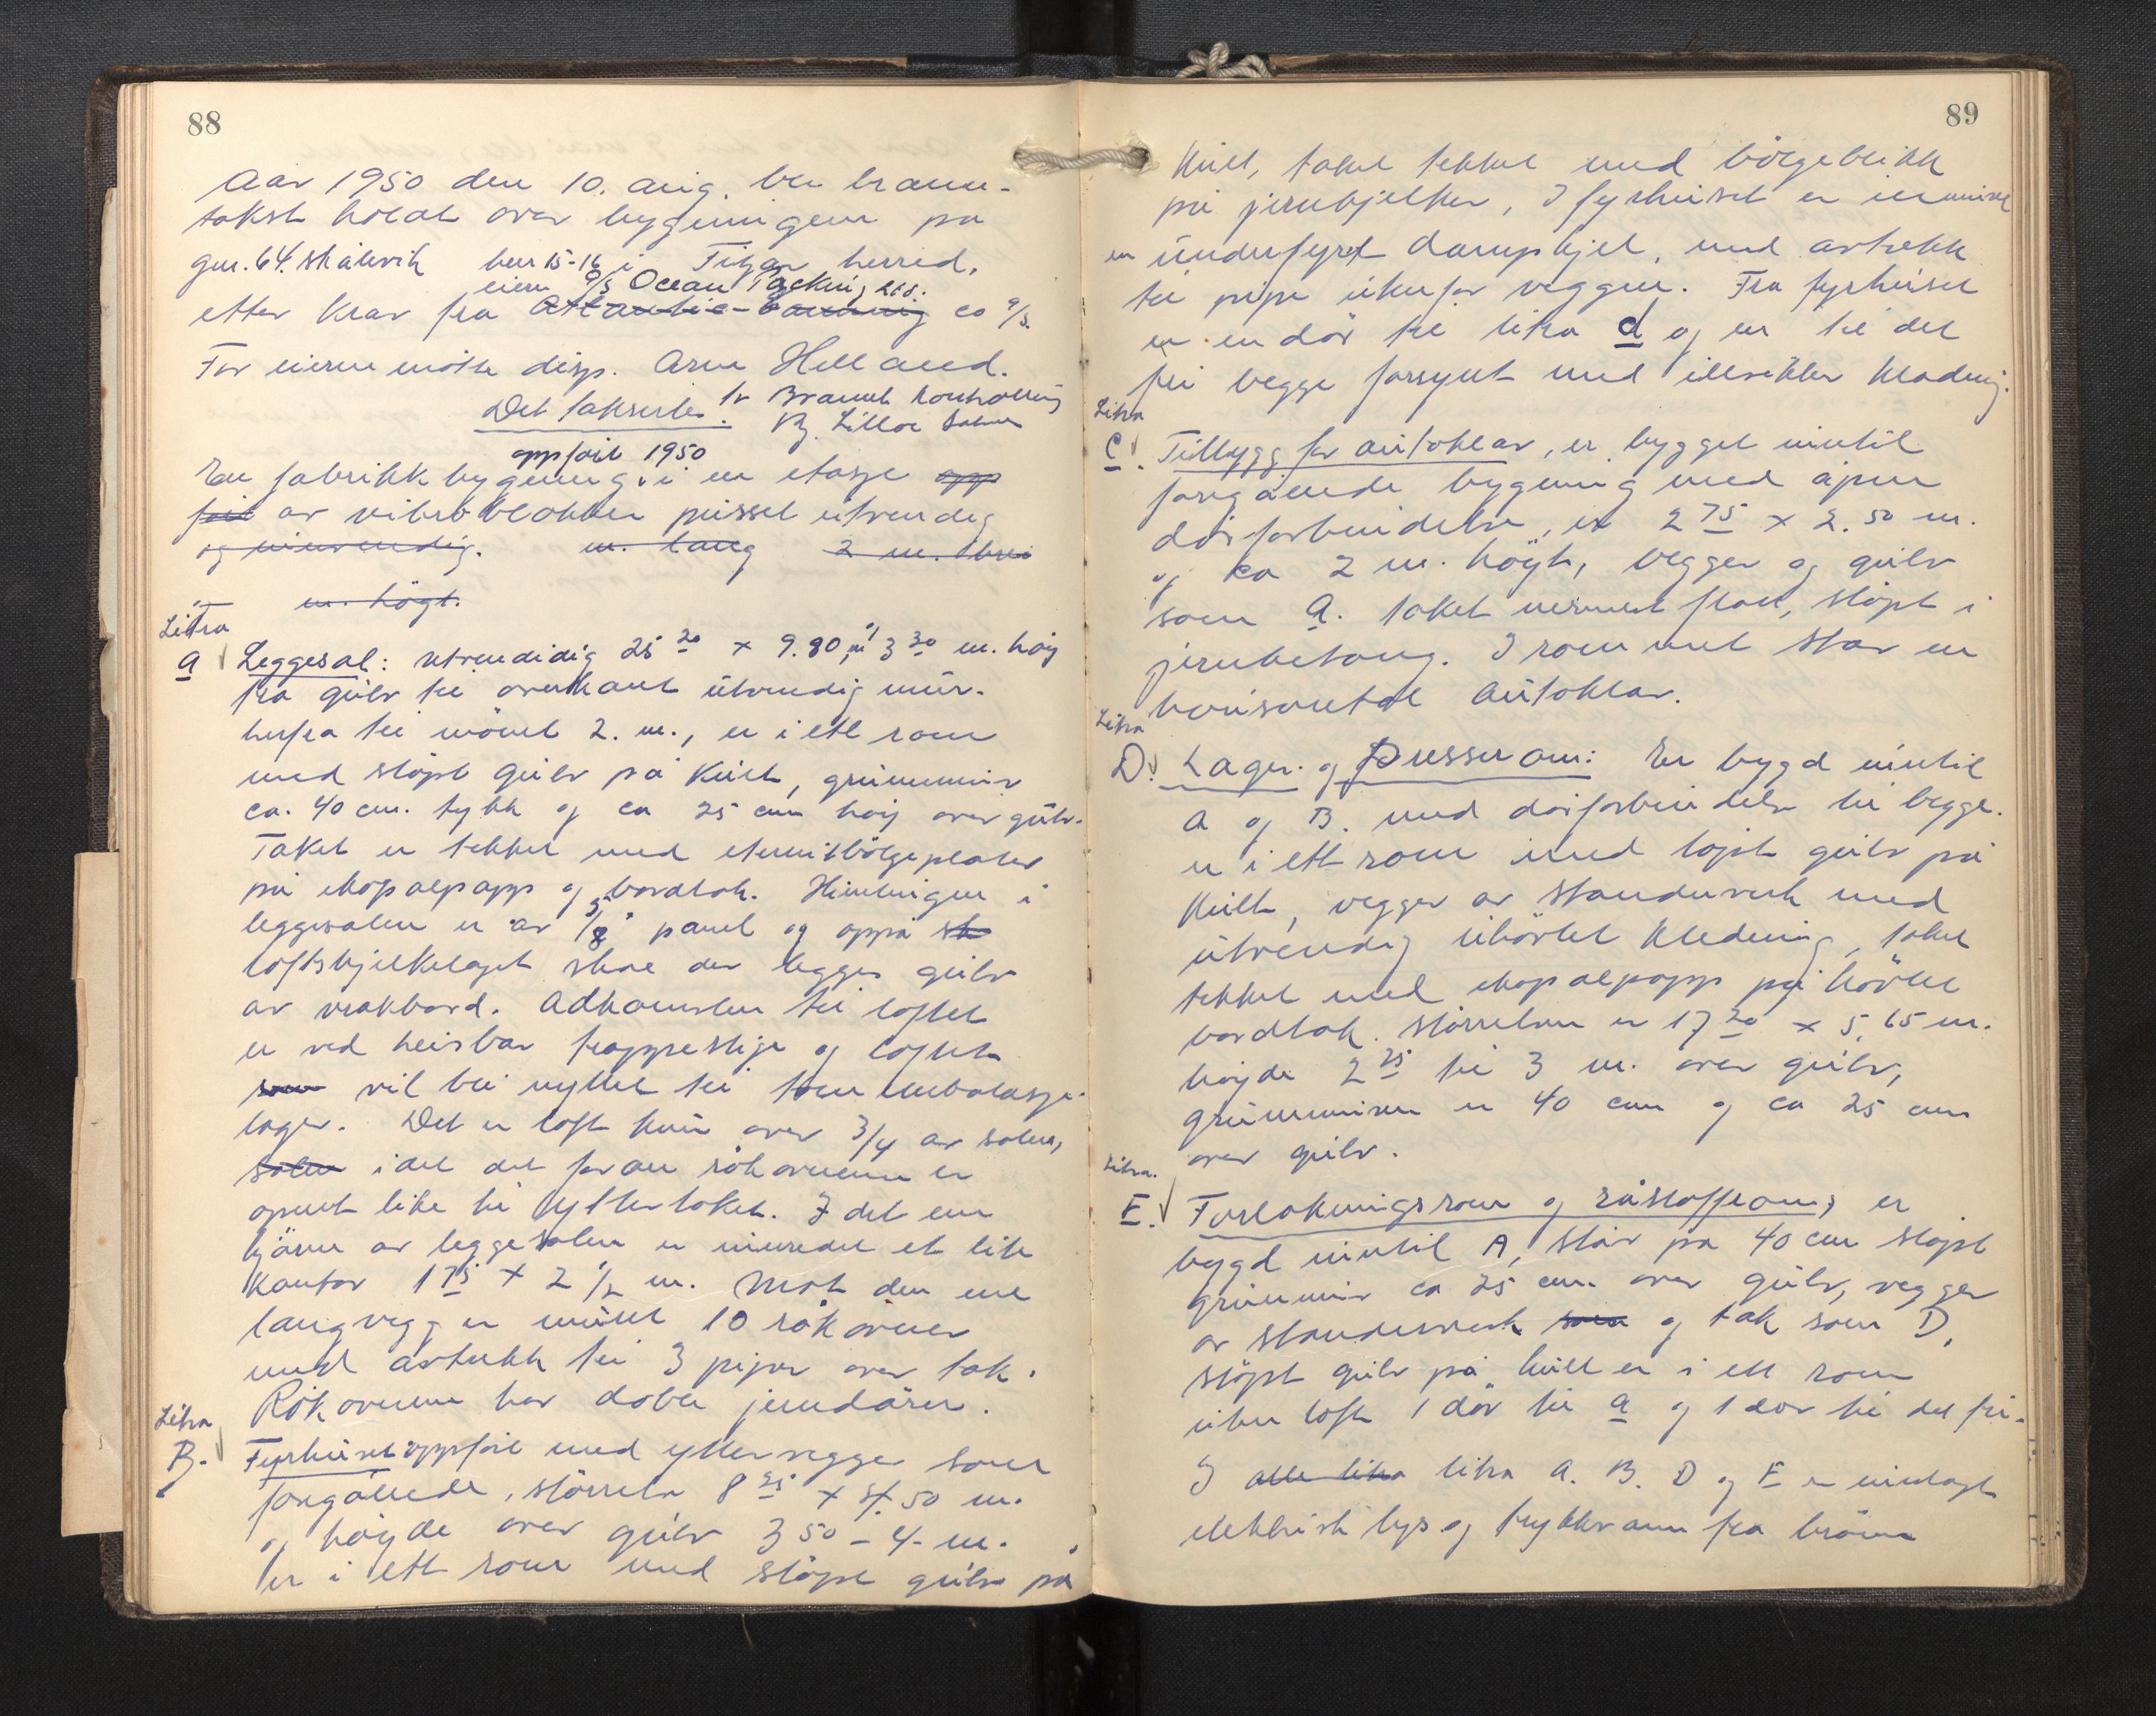 88
Aar 1950 den 10. aug. ble brann-
takst holdt over bygningene på
gnr. 64. Skålevik bnr 15-16 i Fitjar herred,
eiere A/S Ocean Packing Ltd.
etter krav fra Atlantic-Canning Co A/S.
For eierne møtte disp. Arne Helland.
Det takserte: Br Brannk kontrollnr
Bj. Lilloe
oppført 1950
En fabrikkbygning i en etasje opp
ført av vibroblokker pusset utvendig
og innvendig. m. lang 2 m. brei
m. högt.
Litra
a Leggesal: utvendidig 25 20 x 9.80 m, 3 30 m. høg
fra gulv til overkant utvendig mur.
herfra til mönet 2. m., er i ett rom
med støpt gulv på kult, grunnmur
ca. 40 cm. tykk og ca 25 cm høg over gulv.
Taket er tekket med eternitbölgeplater
på ekopalpapp og bordtak. Himlingen i
leggesalen er av 5/8" panel og oppå
loftsbjelkelaget skal der legges gulv
av vrakbord. Adkomsten til loftet
er ved heisbar trappestige og loftet
som vil bli nyttet til tom embalasje-
lager. Det er loft kun over 3/4 av salen,
salen idet det foran rökovnene er
åpent like til yttertaket. I det ene
hjörne av leggesalen er innredet et lite
kontor 1 75 x 2 1/2 m. Mot den ene
langvegg er murt 10 rökovner
med avtrekk til 3 piper over tak.
Rökovnene har doble jerndörer.
Litra
B. Fyrhuset oppført med yttervegger som
foregående, størrelse 8 25 x 4.50 m.
og høyde over gulv 3 50 - 4 - m.
er i ett rom med støpt gulv på
89
kult, taket tekket med bölgeblikk
på jernbjelker, I fyrhuset er innmuret
en underfyrt dampkjel, med avtrekk
til pipe utenfor veggen. Fra fyrhuset
er en dör til litra d og en til det
fri begge forsynt med ildsikker kledning.
Litra
C. Tilbygg for autoklav, er bygget inntil
foregående bygning med åpen
dörforbindelse, er 2 75 x 2.50 m.
og ca 2 m. högt, vegger og gulv
som a. taket nermest flatt, støpt i
jernbetong. I rommet står en
horisontal autoklav.
Litra
D. Lager- og presserom: Er bygd inntil
a og B. med dörforbindelse til begge.
er i ett rom med støpt gulv på
kult, vegger av standerverk med
utvendig uhövlet kledning, taket
tekket med ekopalpapp på hövlet
bordtak. Størrelsen er 17 20 x 5,65 m.
høyde 2 25 til 3 m. over gulv,
grunnmuren er 40 cm og ca 25 cm
over gulv.
Litra.
E. Forlakningsrom og råstoffrom, er
bygd inntil A, står på 40 cm støpt
grunnmur ca 25 cm. over gulv, vegger
av standerverk som og tak som D,
støpt gulv på kult er i ett rom
uten loft 1 dör til a og 1 dör til det fri.
I alle litra litra A. B. D og E er innlagt
elektrisk lys og trykkvann fra brönn